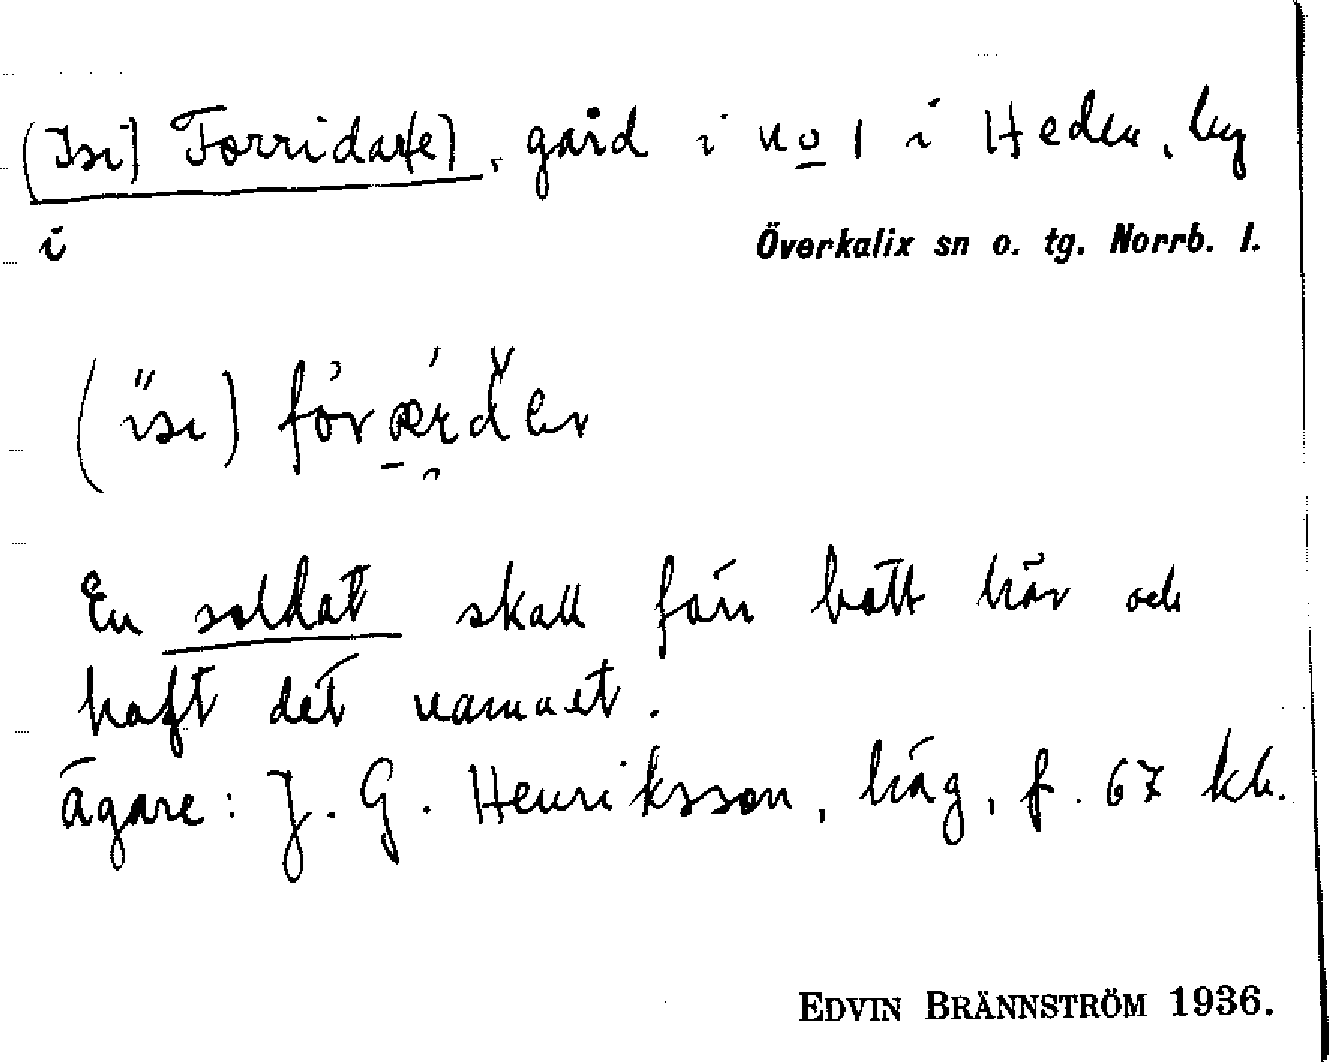 (Isi) Förridar(e), gård i no 1 i Heden, by
i Överkalix sn o. tg. Norrb. l.
En soldat skall förr bott här och
haft det namnet.
Ägare: J. G. Henriksson, häg, f. 67 kb.
EDVIN BRÄNNSTRÖM 1936.